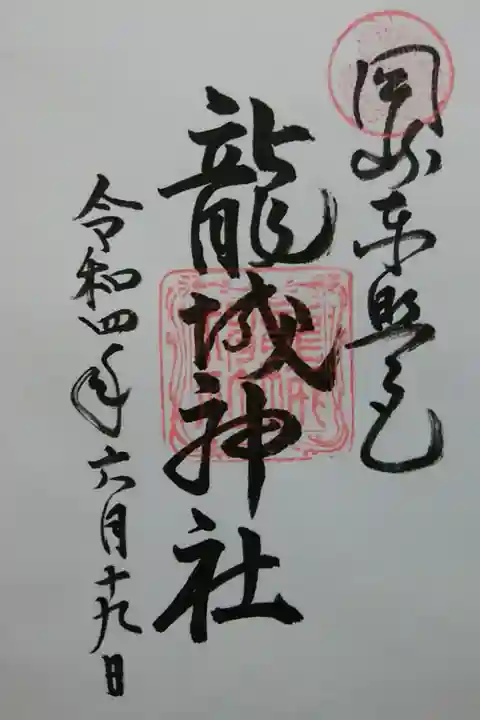 岡崎東照宮
龍城神社
令和四年六月十九日